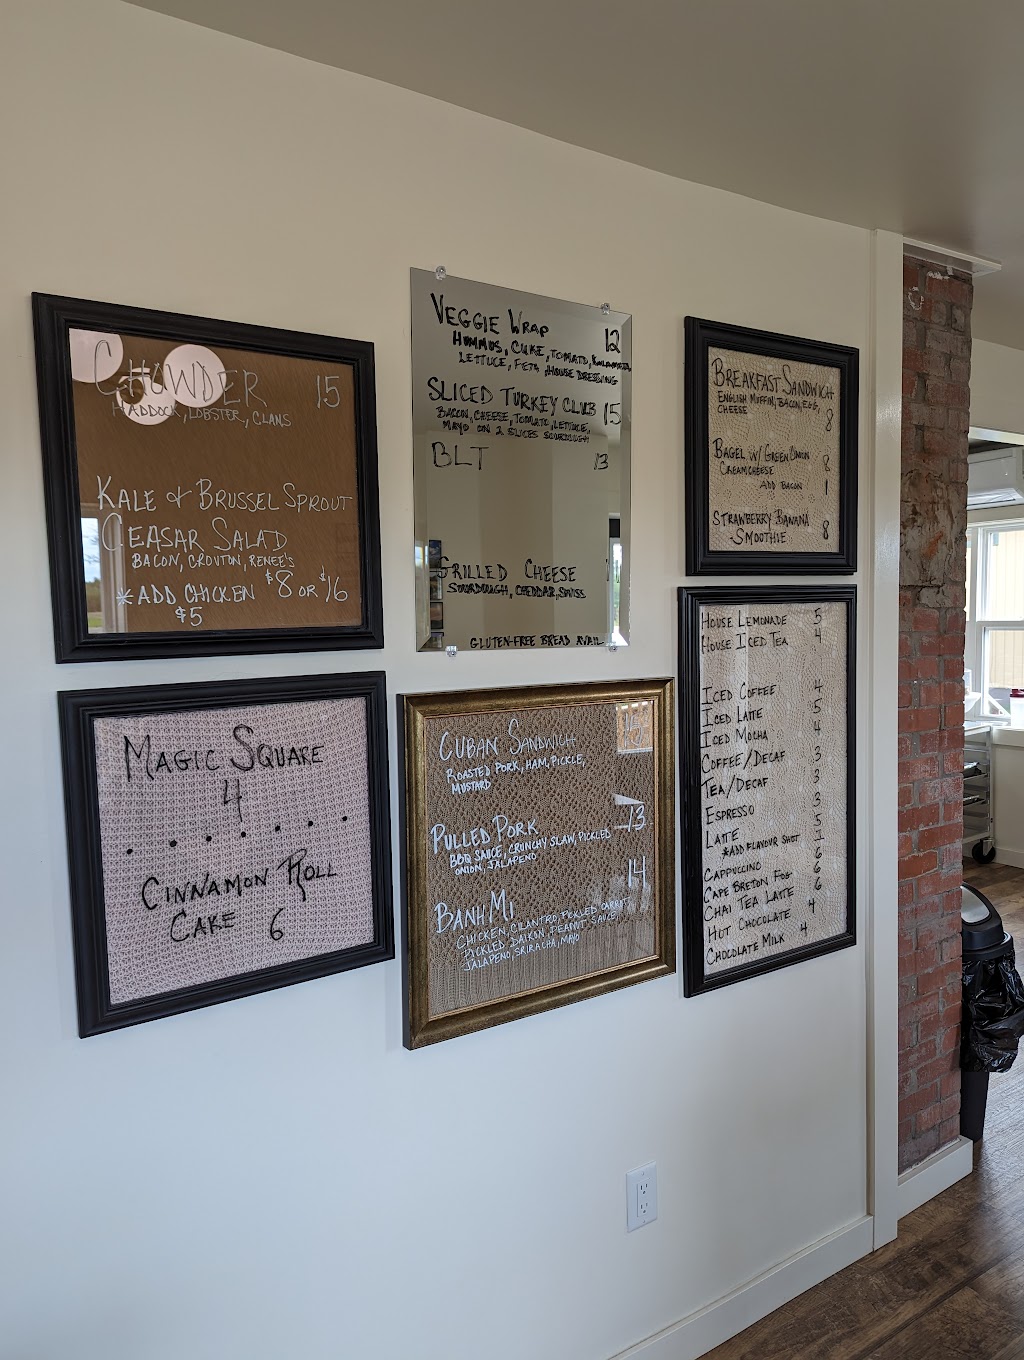 CHOWDER 15
HADDOCK, LOBSTER, CLAMS
KALE & BRUSSEL SPROUT
CEASAR SALAD
BACON, CROUTON, RENEE'S
$8 OR $16
*ADD CHICKEN
$5
VEGGIE WRAP 12
HUMMUS, CUKE, TOMATO, KALAMATA,
LETTUCE, FETA, HOUSE DRESSING
SLICED TURKEY CLUB 15
BACON, CHEESE, TOMATO, LETTUCE,
MAYO ON 2 SLICES SOURDOUGH
BLT 13
GRILLED CHEESE
SOURDOUGH, CHEDDAR, SWISS
GLUTEN-FREE BREAD AVAIL.
BREAKFAST SANDWICH
ENGLISH MUFFIN, BACON, EGG,
CHEESE 8
BAGEL W/ GREEN ONION 8
CREAMCHEESE
ADD BACON 1
STRAWBERRY BANANA
SMOOTHIE 8
MAGIC SQUARE
4
CINNAMON ROLL
CAKE 6
CUBAN SANDWICH
ROASTED PORK, HAM, PICKLE,
MUSTARD
PULLED PORK 13
BBQ SAUCE, CRUNCHY SLAW, PICKLED
ONION, JALAPENO
BANH MI 14
CHICKEN, CILANTRO, PICKLED CARROT,
PICKLED DAIKON, PEANUT SAUCE,
JALAPENO, SRIRACHA, MAYO
HOUSE LEMONADE 5
HOUSE ICED TEA 4
ICED COFFEE 4
ICED LATTE 5
ICED MOCHA 4
COFFEE/DECAF 3
TEA/DECAF 3
ESPRESSO 3
LATTE 5
*ADD FLAVOUR SHOT 1
CAPPUCCINO 6
CAPE BRETON FOG 6
CHAI TEA LATTE 6
HOT CHOCOLATE 4
CHOCOLATE MILK 4